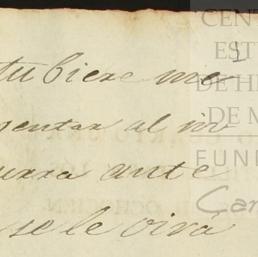 tubiere me
mentar al in
urra ante
se le oirá
CEN
EST
DE H
DE M
FUN
Car